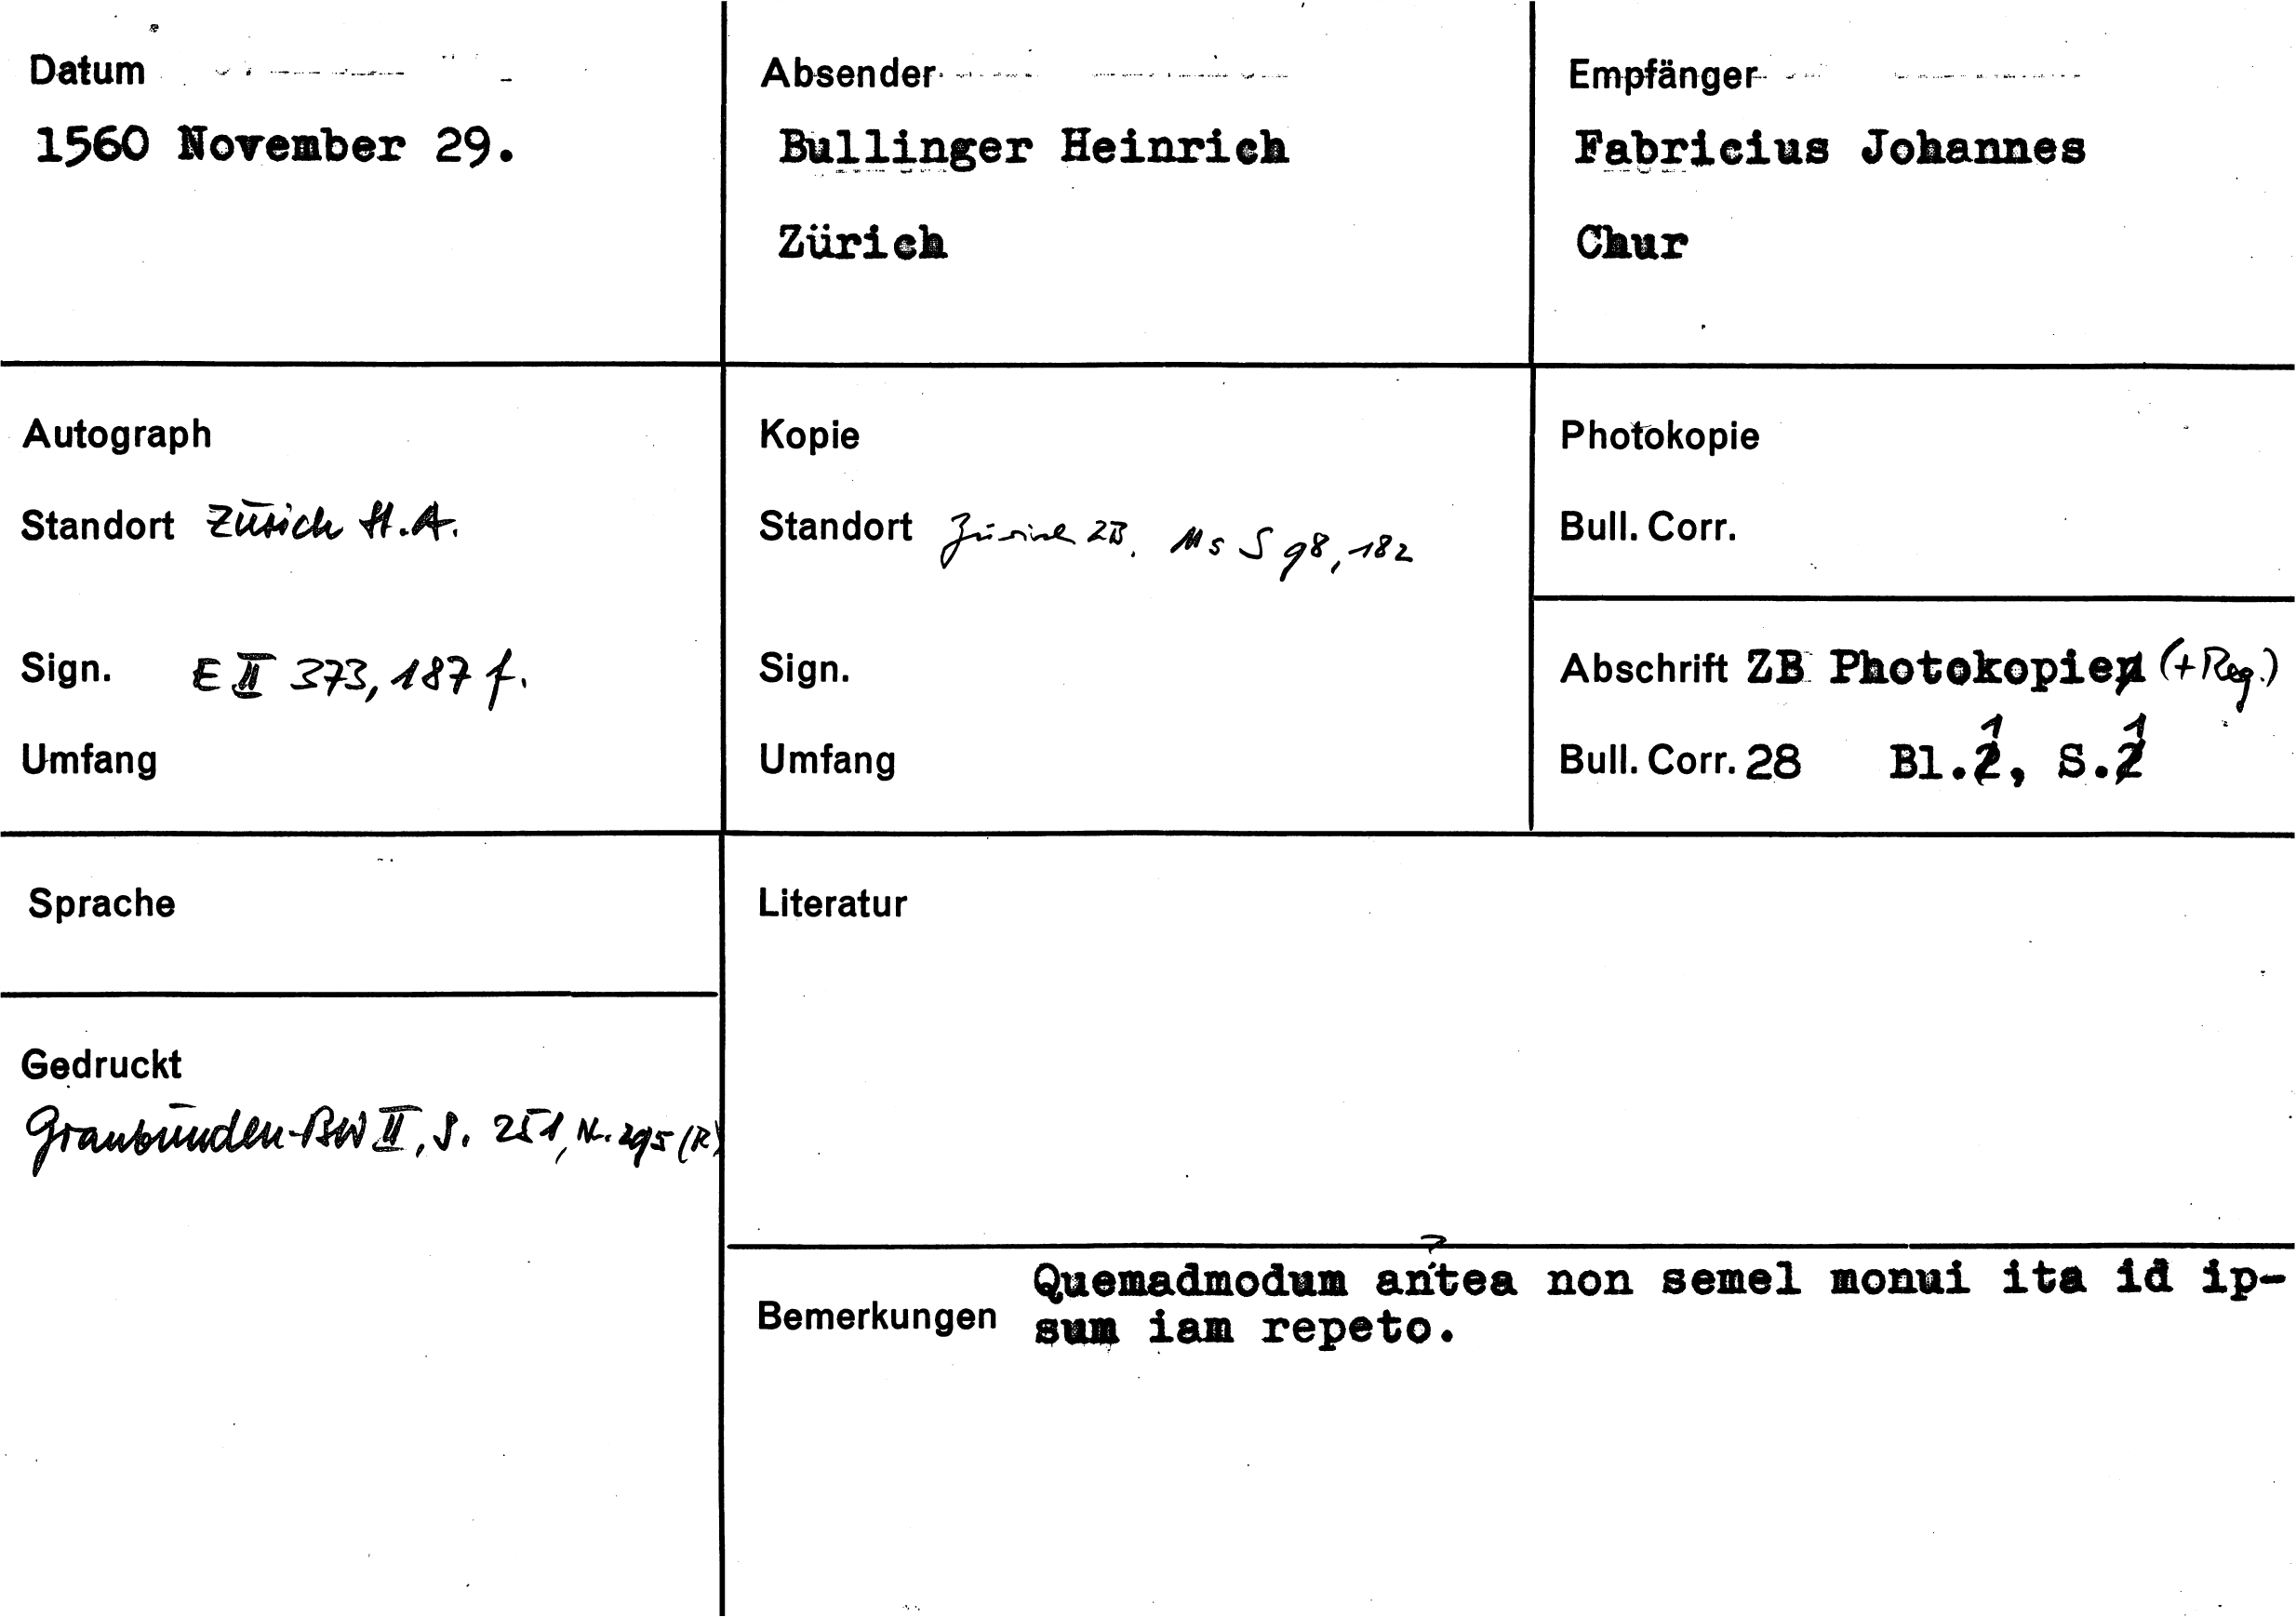 Datum
1560 November 29.
Absender
Bullinger Heinrich
Zürich
Empfänger
Fabricius Johannes
Chur
Autograph
Standort Zürich St.A.
Sign. E II 373, 187 f.
Umfang
Kopie
Standort Zürich ZB. Ms S 98, 182
Sign.
Umfang
Photokopie
Bull. Corr.
Abschrift ZB Photokopie (+ Reg.)
Bull. Corr. 28 Bl.1, S.1
Sprache
Gedruckt
Graubünden-BW II, S. 251, Nr. 295 (R)
Literatur
Bemerkungen Quemadmodum antea non semel monui ita id ip-
sum iam repeto.